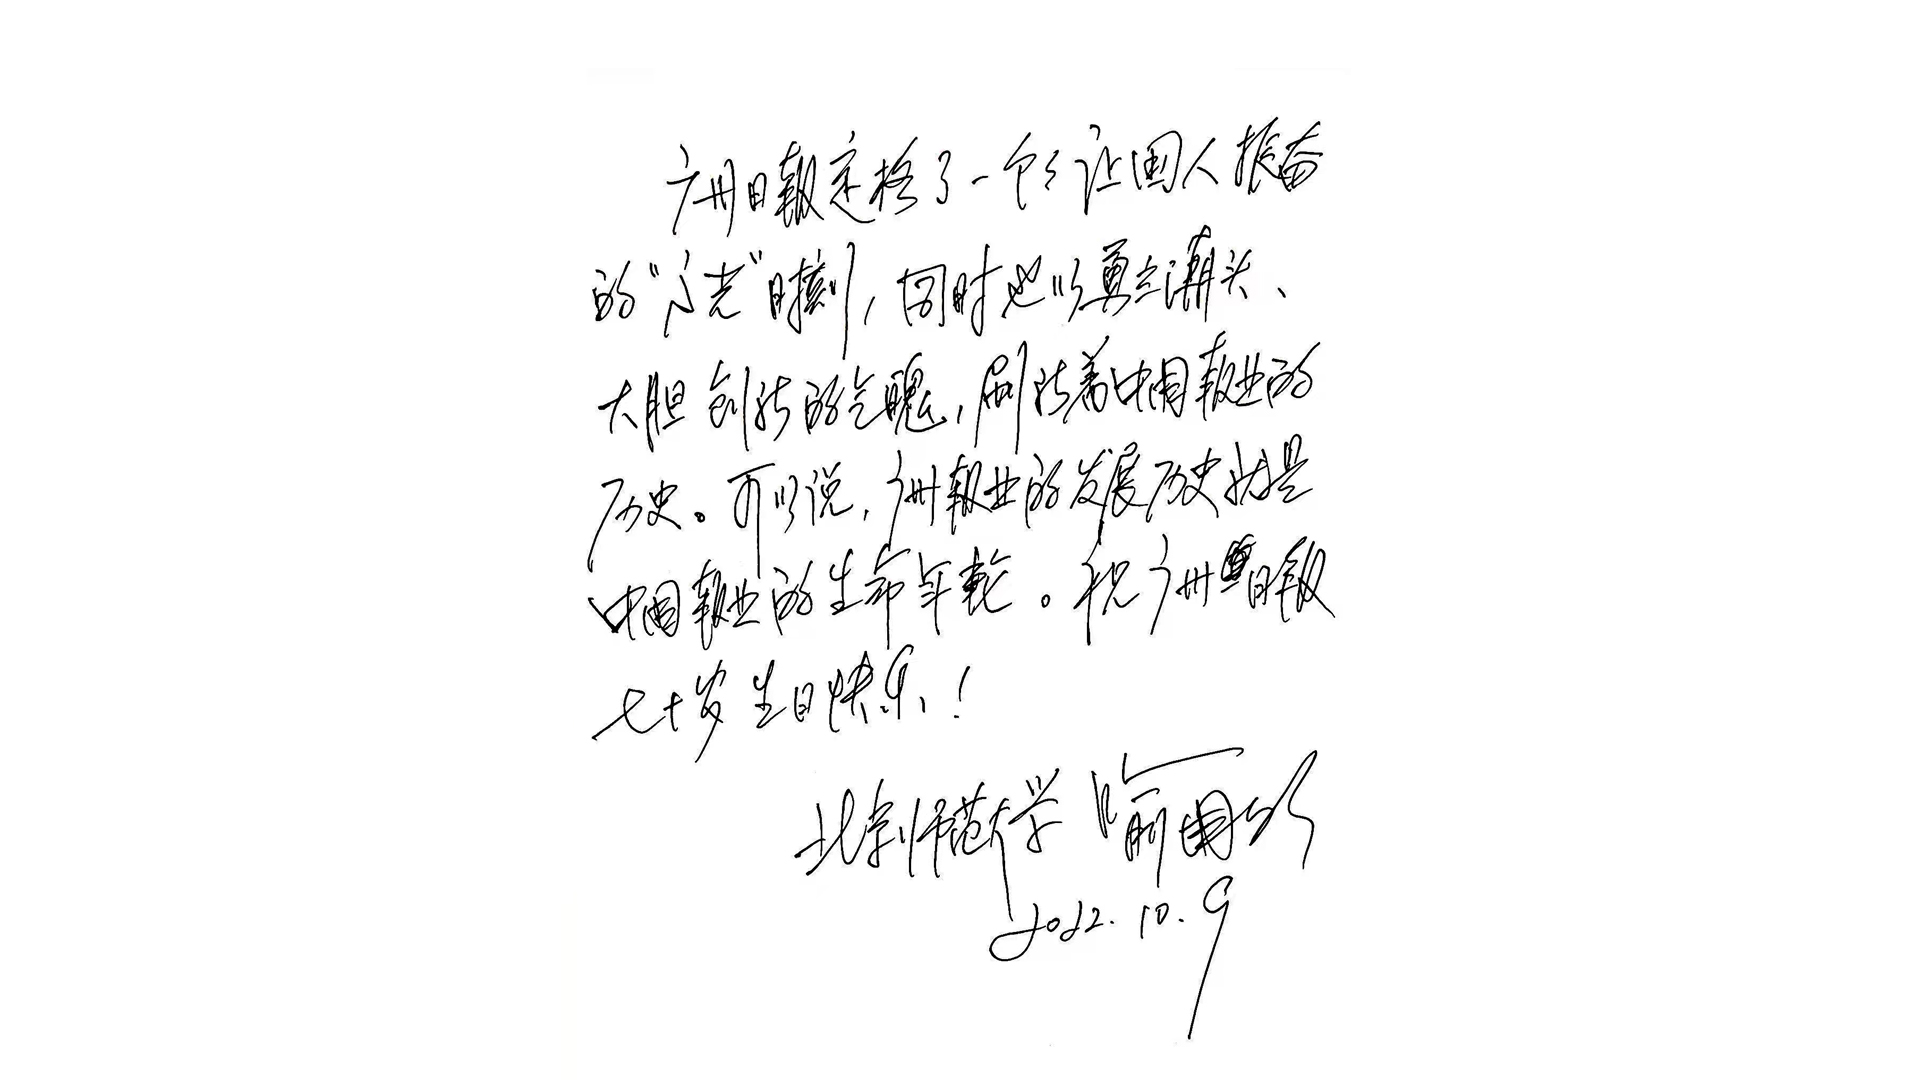 广州日报定格了一个个让国人振奋
的“高光”时刻，同时也以勇立潮头、
大胆创新的气魄，刷新着中国报业的
历史。可以说，广州报业的发展历史就是
中国报业的生命年轮。祝广州日报
七十岁生日快乐！
北京师范大学 喻国明
2022.10.9